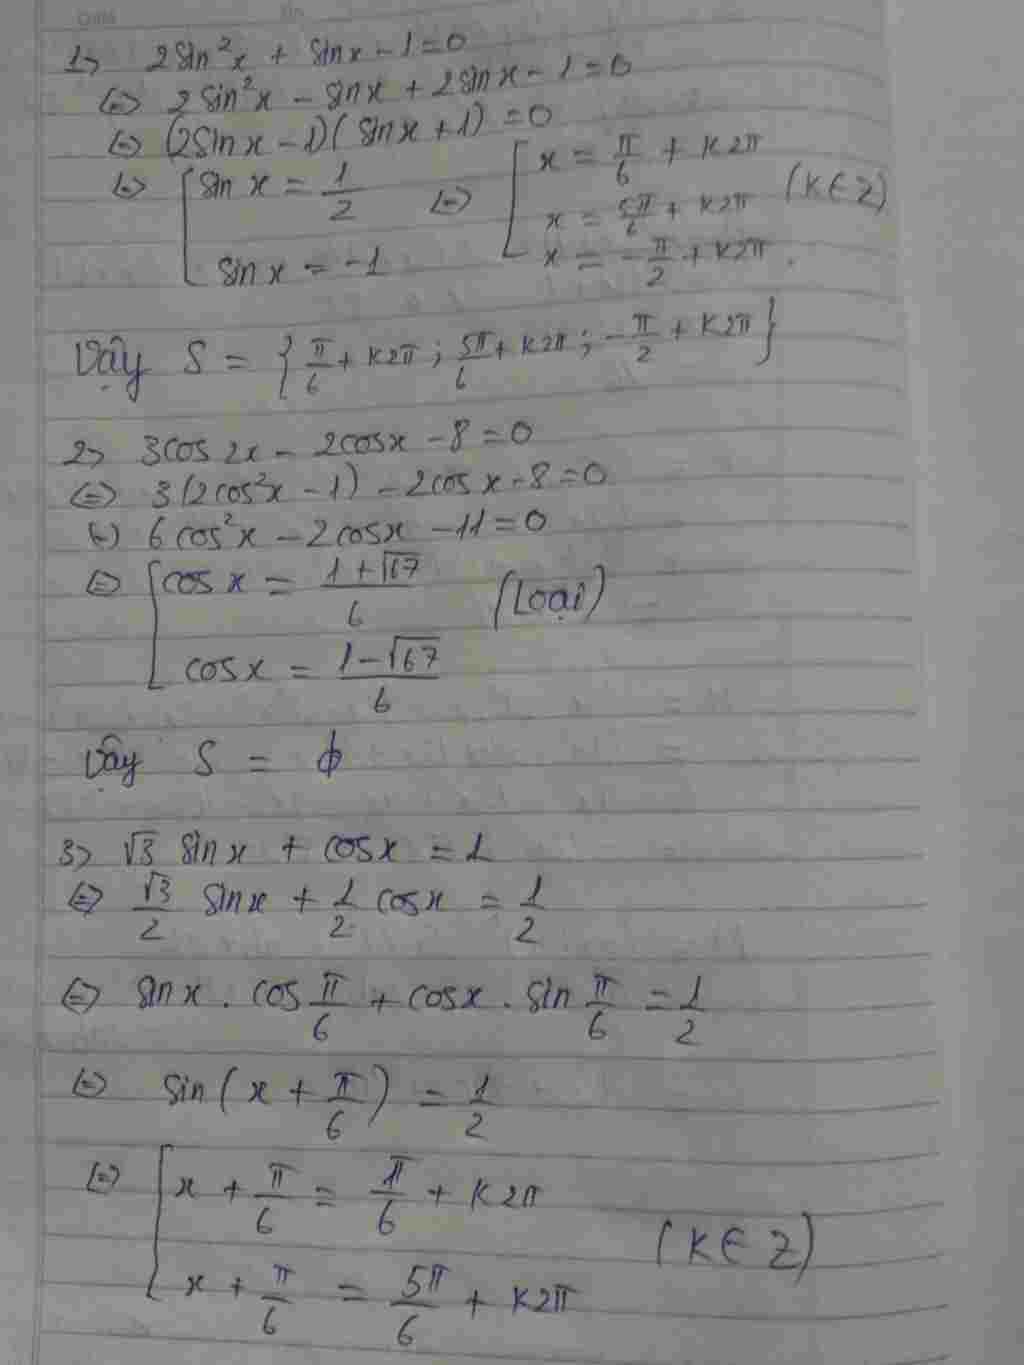 1> 2sin²x + sinx - 1 = 0
<=> 2sin²x - sinx + 2sinx - 1 = 0
<=> (2sinx - 1)(sinx + 1) = 0
<=> [ sinx = 1/2 <=> [ x = π/6 + k2π
x = 5π/6 + k2π (k∈Z)
sinx = -1 x = -π/2 + k2π.
Vậy S = { π/6 + k2π ; 5π/6 + k2π ; -π/2 + k2π }
2> 3cos2x - 2cosx - 8 = 0
<=> 3(2cos²x - 1) - 2cosx - 8 = 0
<=> 6cos²x - 2cosx - 11 = 0
<=> [ cosx = (1 + √67)/6 (Loại)
cosx = (1 - √67)/6
Vậy S = ϕ
3> √3 sinx + cosx = 1
<=> √3/2 sinx + 1/2 cosx = 1/2
<=> sinx . cos π/6 + cosx . sin π/6 = 1/2
<=> sin(x + π/6) = 1/2
<=> [ x + π/6 = π/6 + k2π
(k∈Z)
x + π/6 = 5π/6 + k2π